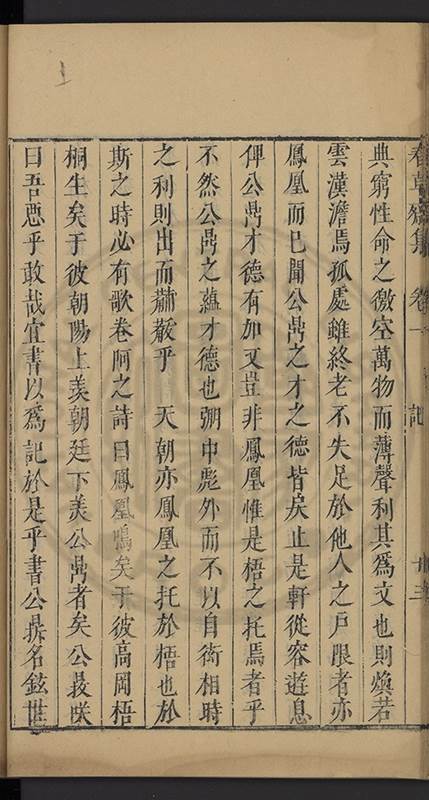 春草齋集 卷一 記 十三
典窮性命之微空萬物而薄聲利其爲文也則煥若
雲漢澹焉孤處雖終老不失足於他人之戶限者亦
鳳凰而已聞公鼎之才之德皆戾止是軒從容遊息
俾公鼎才德有加又豈非鳳凰惟是梧之托焉者乎
不然公鼎之蘊才德也弸中彪外而不以自衒相時
之利則出而黼黻乎 天朝亦鳳凰之托於梧也於
斯之時必有歌卷阿之詩曰鳳凰鳴矣于彼高岡梧
桐生矣于彼朝陽上美朝廷下美公鼎者矣公鼎咲
曰吾惡乎敢哉宜書以爲記於是乎書公鼎名鉉世